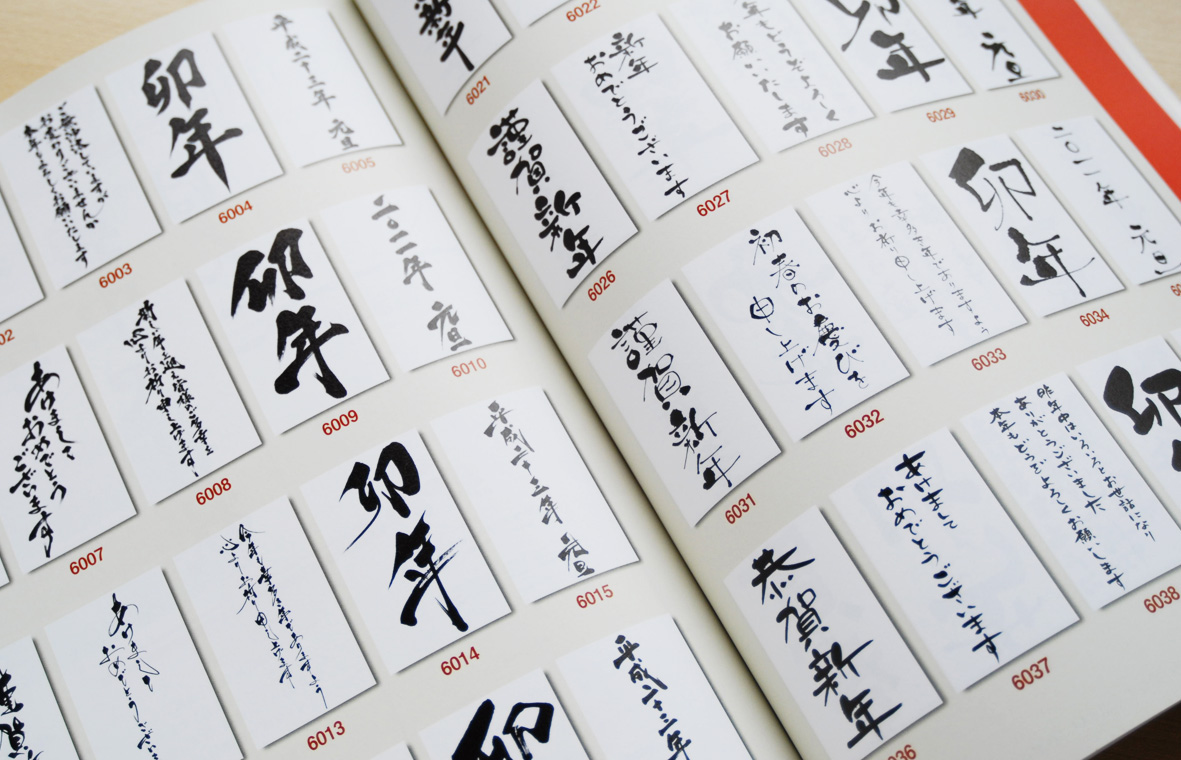 ご無沙汰していますが
お変わりございませんか
今年もよろしくお願いいたします
6003
卯年
6004
平成二十三年 元旦
6005
あけまして
おめでとう
ございます
6007
新しい年を迎え皆様のご多幸を
心よりお祈り申し上げます
6008
卯年
6009
二〇一一年 元旦
6010
あけまして
おめでとうござい
今年も幸多き年でありますよう
心よりお祈り申し上げます
6013
卯年
6014
平成二十三年 元旦
6015
卯
平成二十三年
新年
6021
6022
謹賀新年
6026
新年
おめでとうございます
6027
年もどうぞよろしく
お願いいたします
6028
卯年
6029
年 元旦
6030
謹賀新年
6031
初春のお慶びを
申し上げます
6032
今年も幸多き年でありますよう
心よりお祈り申し上げます
6033
卯年
6034
二〇一一年 元旦
恭賀新年
036
あけまして
おめでとうございます
6037
昨年中はいろいろとお世話になり
ありがとうございました
本年もどうぞよろしくお願いします
6038
卯